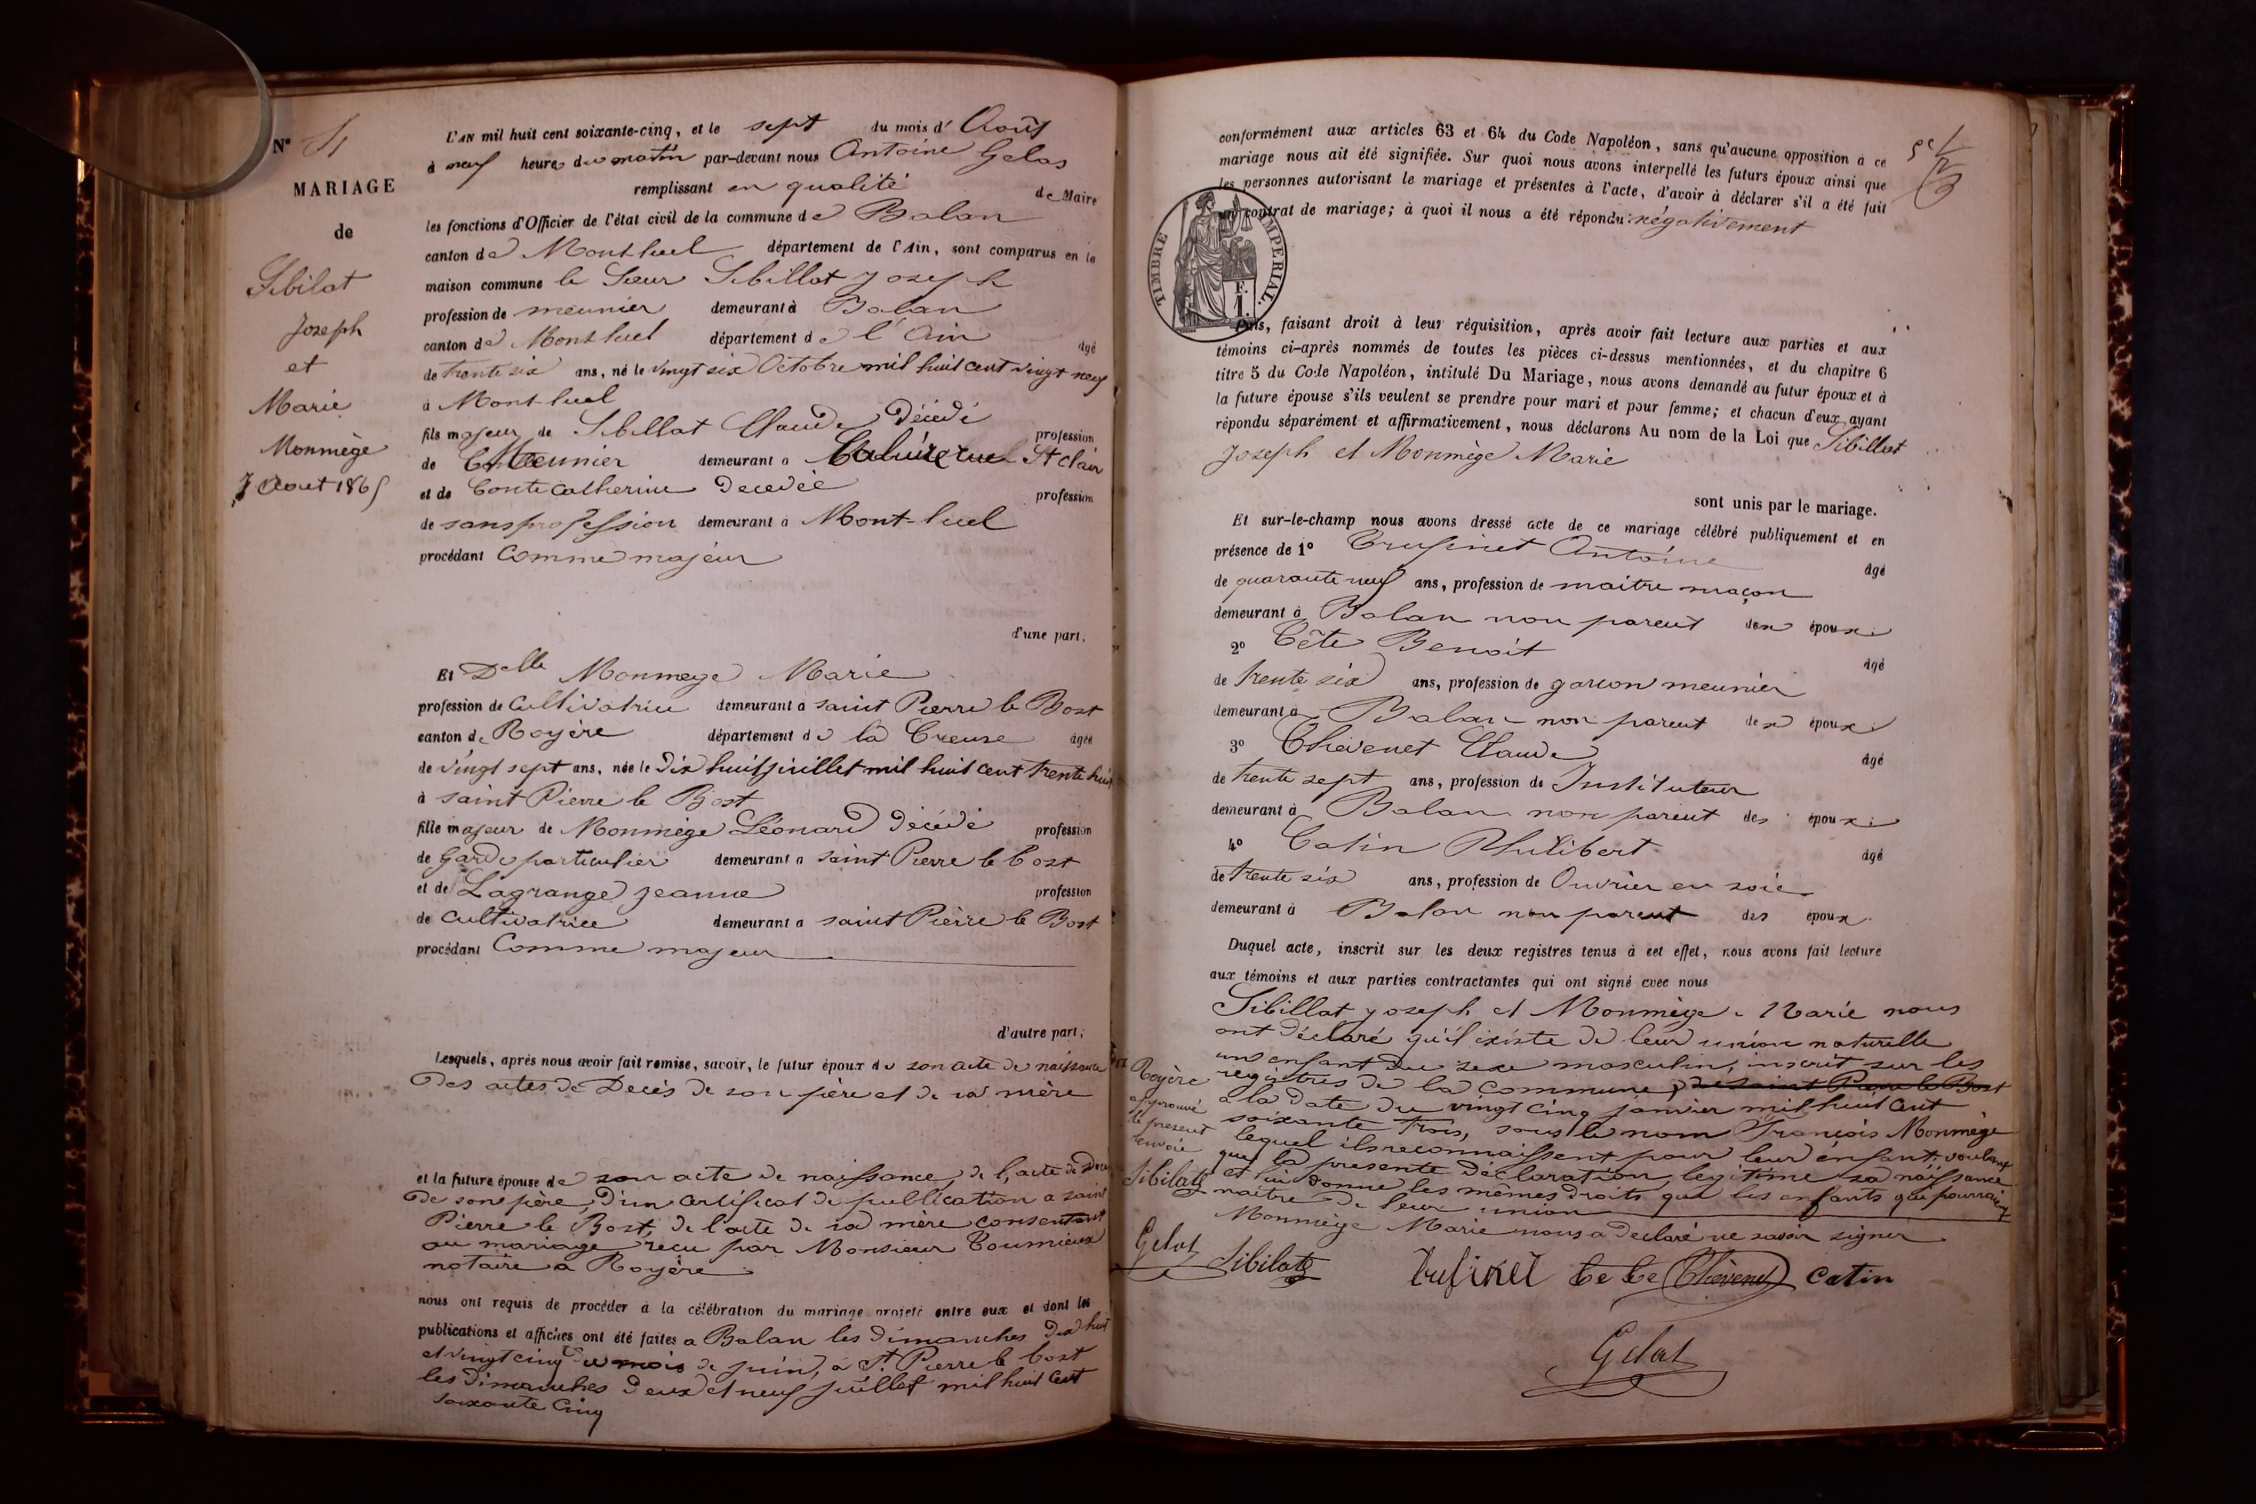 N° 4
MARIAGE
de
Sibilat
Joseph
et
Marie
Monmège
7 Aout 1865
L'AN mil huit cent soixante-cinq, et le sept du mois d' Août
à neuf heures du matin par-devant nous Antoine Gelas
remplissant en qualité de Maire
les fonctions d'Officier de l'état civil de la commune de Balan
canton de Montluel département de l'Ain, sont comparus en la
maison commune le Sieur Sibillat Joseph
profession de meunier demeurant à Balan
canton de Montluel département de l'Ain âgé
de trente six ans, né le vingt six Octobre mil huit cent vingt neuf
à Mont-luel
fils majeur de Sibillat Claude Décédé profession
de Meunier demeurant a St clair
et de Conte Catherine Decedée profession
de sans profession demeurant à Mont-luel
procédant Comme majeur
d'une part,
Et Delle Monmege Marie
profession de Cultivatrice demeurant à saint Pierre le Bost
canton de Royère département de la Creuse âgée
de vingt sept ans, née le Dix huit juillet mil huit cent trente huit
à saint Pierre le Bost
fille majeur de Monmège Léonard Décédé profession
de Garde particulier demeurant a saint Pierre le bost
et de Lagrange Jeanne profession
de cultivatrice demeurant a saint Pierre le Bost
procédant Comme majeur
d'autre part;
Lesquels, après nous avoir fait remise, savoir, le futur époux de son acte de naissance
des actes de Decès de son père et de sa mère
et la future épouse de son acte de naissance, de l'acte de Decès
de son père, D'un certificat de publication a saint
Pierre le Bost, de l'acte de sa mère consentant
au mariage recu par Monsieur Toumieux
notaire a Royère
nous ont requis de procéder à la célébration du mariage projeté entre eux et dont les
publications et affiches ont été faites a Balan les dimanches Dix huit
et vingt cinq du mois de juin, à St Pierre le bost
les dimanches deux et neuf juillet mil huit cent
soixante cinq
conformément aux articles 63 et 64 du Code Napoléon, sans qu'aucune opposition à ce
mariage nous ait été signifiée. Sur quoi nous avons interpellé les futurs époux ainsi que
les personnes autorisant le mariage et présentes à l'acte, d'avoir à déclarer s'il a été fait
un contrat de mariage; à quoi il nous a été répondu: négativement
TIMBRE IMPERIAL.
F.
1.
Puis, faisant droit à leur réquisition, après avoir fait lecture aux parties et aux
témoins ci-après nommés de toutes les pièces ci-dessus mentionnées, et du chapitre 6
titre 5 du Code Napoléon, intitulé Du Mariage, nous avons demandé au futur époux et à
la future épouse s'ils veulent se prendre pour mari et pour femme; et chacun d'eux ayant
répondu séparément et affirmativement, nous déclarons Au nom de la Loi que Sibillat
Joseph et Monmège Marie
sont unis par le mariage.
Et sur-le-champ nous avons dressé acte de ce mariage célébré publiquement et en
présence de 1° Trufinet Antoine âgé
de quarante neuf ans, profession de maitre maçon
demeurant à Balan non parent des époux.
2° Tête Benoit âgé
de trente six ans, profession de garcon meunier
demeurant à Balan non parent des époux.
3° Thévenet Claude âgé
de trente sept ans, profession de Instituteur
demeurant à Balan non parent des époux.
4° Catin Philibert âgé
de trente six ans, profession de Ouvrier en soie
demeurant à Balan non parent des époux.
Duquel acte, inscrit sur les deux registres tenus à cet effet, nous avons fait lecture
aux témoins et aux parties contractantes qui ont signé avec nous
Sibillat Joseph et Monmège Marie nous
ont déclaré qu'il existe de leur union naturelle
un enfant du sexe masculin, inscrit sur les
registres de la commune de saint Pierre le Bost
a la date du vingt cinq janvier mil huit cent
soixante trois, sous le nom François Monmège
lequel ils reconnaissent pour leur enfant voulant
que la presente déclaration, légitime sa naissance
et lui donne les mêmes droits que les enfants qui pourraient
naitre de leur union
Monmège Marie nous a declaré ne savoir signer
Royère
approuvé
le present
renvoie
Sibilat
Gelas
Sibilat Trufinet tete Thévenet Catin
Gelas